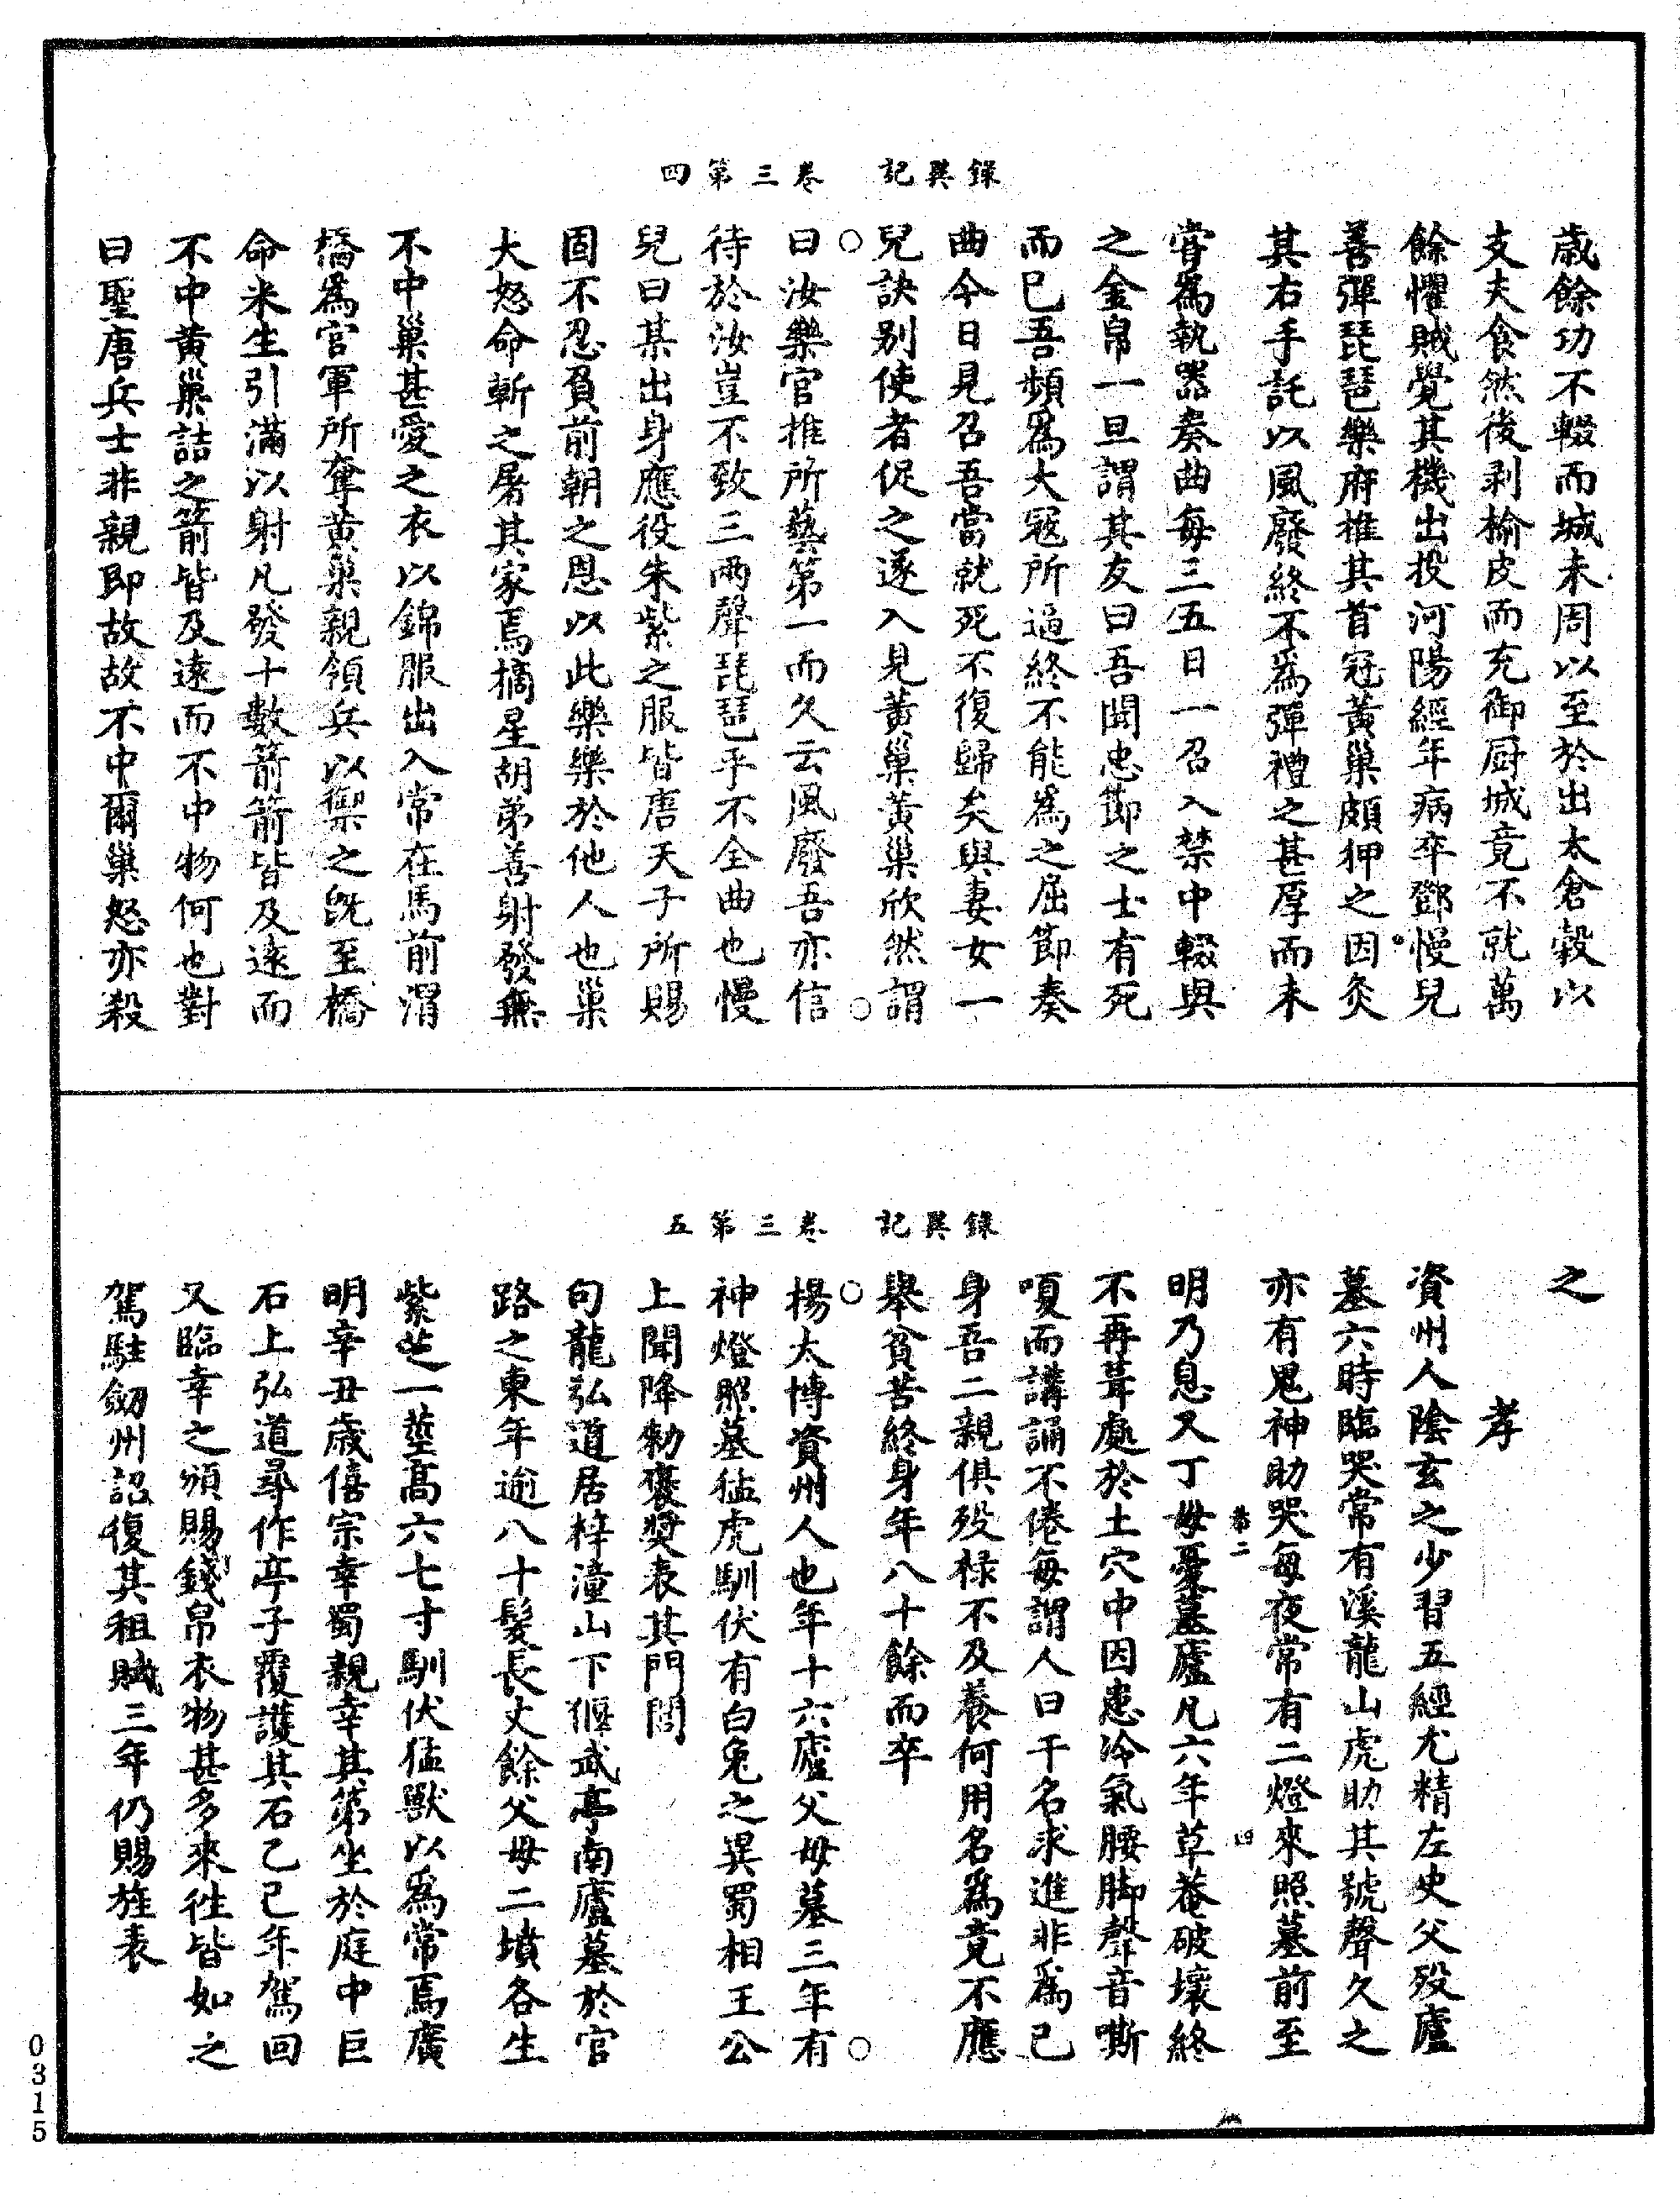 錄異記 卷三第四
歲餘功不輟而城未周以至於出太倉穀以
支夫食然後剥榆皮而充御厨城竟不就萬
餘懼賊覺其機出投河陽經年病卒鄧慢兒
善彈琵琶樂府推其首冠黃巢頗狎之因灸
其右手託以風廢終不爲彈禮之甚厚而未
嘗爲執器奏曲每三五日一召入禁中輟與
之金帛一旦謂其友曰吾聞忠節之士有死
而已吾頻爲大寇所逼終不能爲之屈節奏
曲今日見召吾當就死不復歸矣與妻女一
兒訣别使者促之遂入見黃巢黃巢欣然謂
曰汝樂官推所藝第一而久云風廢吾亦信
待於汝豈不致三兩聲琵琶乎不全曲也慢
兒曰某出身應役朱紫之服皆唐天子所賜
固不忍負前朝之恩以此樂樂於他人也巢
大怒命斬之屠其家焉摘星胡弟善射發無
不中巢甚愛之衣以錦服出入常在馬前渭
橋爲官軍所奪黄巢親領兵以禦之旣至橋
命米生引滿以射凡發十數箭箭皆及遠而
不中黄巢詰之箭皆及遠而不中物何也對
曰聖唐兵士非親即故故不中爾巢怒亦殺
錄異記 卷三第五
之
孝
資州人陰玄之少習五經尤精左史父歿廬
墓六時臨哭常有溪龍山虎助其號聲久之
亦有鬼神助哭每夜常有二燈來照墓前至
恭二 四
明乃息又丁母憂墓廬凡六年草菴破壞終
不再葺處於土穴中因患冷氣腰脚聲音嘶
嗄而講誦不倦每謂人曰干名求進非爲已
身吾二親俱歿祿不及養何用名爲竟不應
舉貧苦終身年八十餘而卒
楊太博資州人也年十六廬父母墓三年有
神燈照墓猛虎馴伏有白兔之異蜀相王公
上聞降勑襃奬表其門閭
句龍弘道居梓潼山下偃武亭南廬墓於官
路之東年逾八十髮長丈餘父母二墳各生
紫芝一莖高六七寸馴伏猛獸以爲常焉廣
明辛丑歲僖宗幸蜀親幸其第坐於庭中巨
石上弘道尋作亭子覆護其石乙已年駕回
又臨幸之頒賜錢帛衣物甚多來徃皆如之
駕駐劒州詔復其租賦三年仍賜旌表
0315